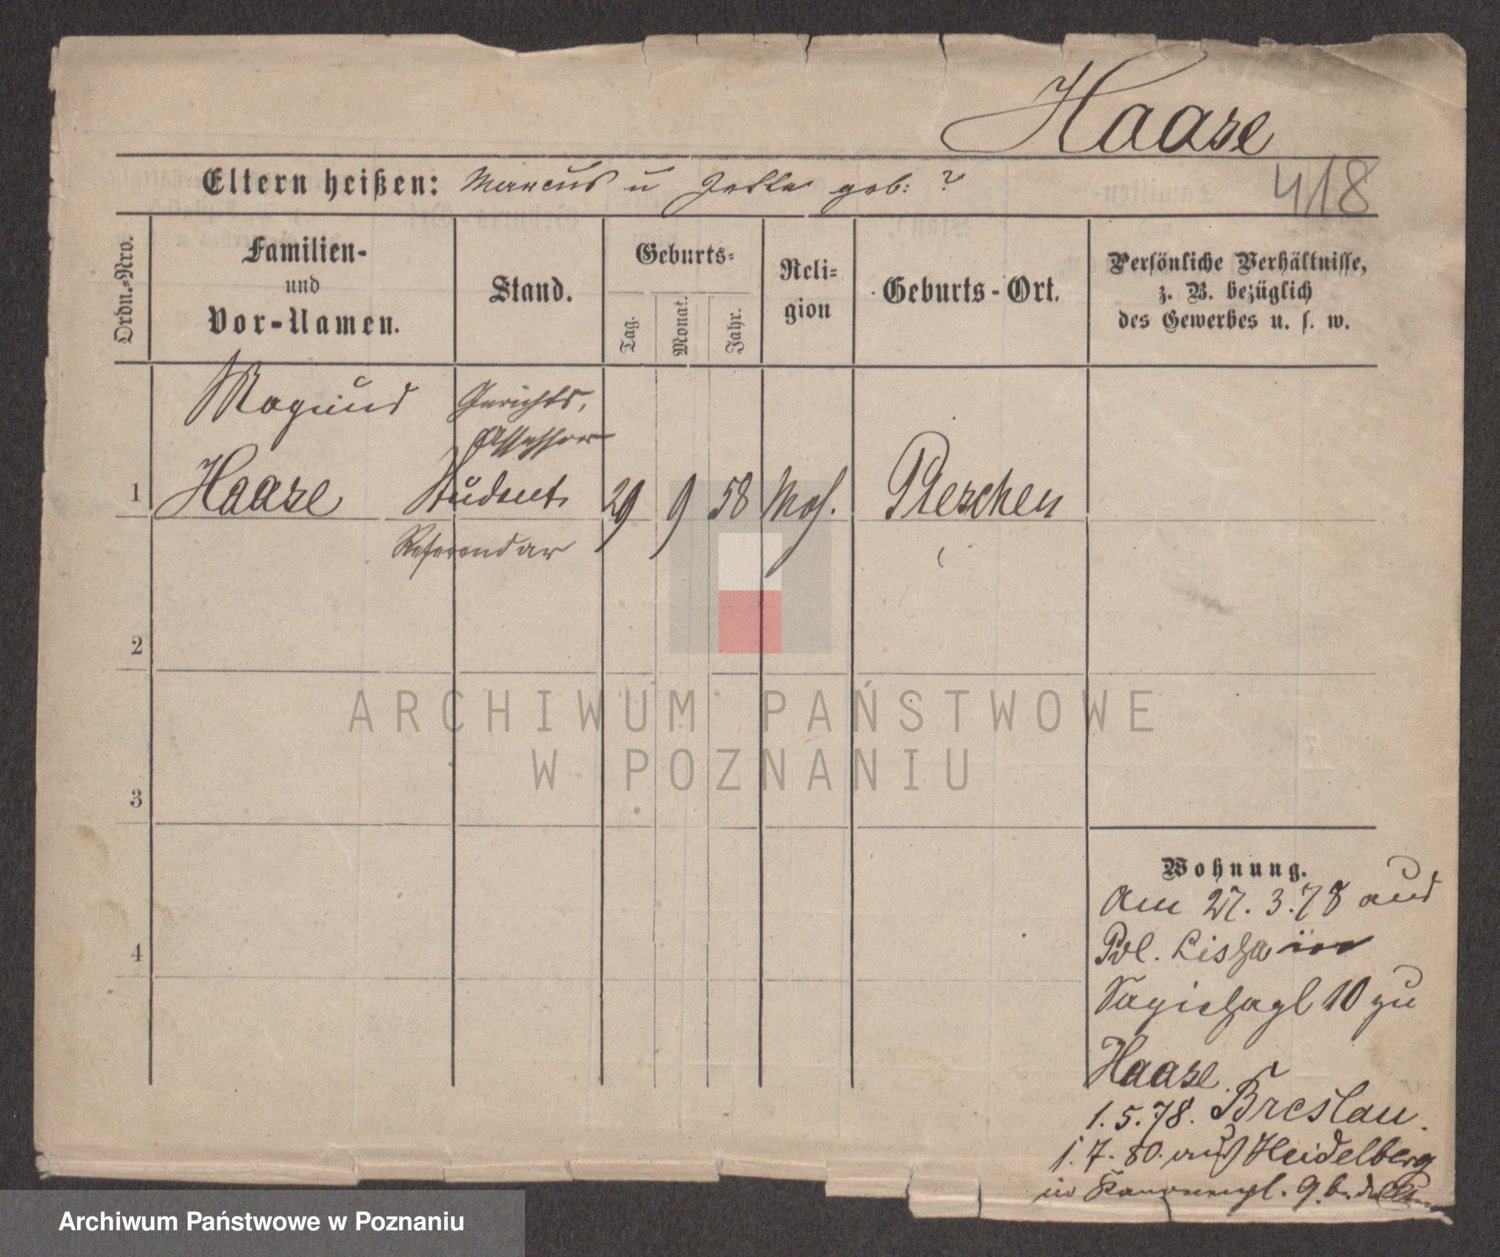 Haase
Eltern heißen: Marcus u gob: ?
418
Ordn.-Nro.
Familien-
und
Vor-Namen.
Stand.
Geburts-
Tag.
Monat.
Jahr.
Reli-
gion
Geburts-Ort.
Persönliche Verhältnisse,
z. B. bezüglich
des Gewerbes u. s. w.
Gerichts,
Assessor
1 Haase Student 29 9 58 Mos. Pleschen
Referendar
2
3
4
Wohnung.
Am 27. 3. 78 aus
Pol. Lissa in
10 zu
Haase.
1. 5. 78. Breslau.
1. 7. 80. aus Heidelberg
in 9 b.
ARCHIWUM PAŃSTWOWE
W POZNANIU
Archiwum Państwowe w Poznaniu